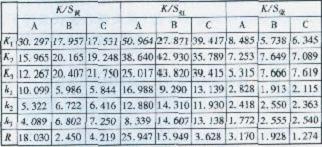 K/S黄 K/S红 K/S蓝
A B C A B C A B C
K₁ 30.297 17.957 17.531 50.964 27.871 39.417 8.485 5.738 6.345
K₂ 15.965 20.165 19.248 38.640 42.930 35.789 7.253 7.649 7.089
K₃ 12.267 20.407 21.750 25.017 43.820 39.415 5.315 7.666 7.619
k₁ 10.099 5.986 5.844 16.988 9.290 13.139 2.828 1.913 2.115
k₂ 5.322 6.722 6.416 12.880 14.310 11.930 2.418 2.550 2.363
k₃ 4.089 6.802 7.250 8.339 14.607 13.138 1.772 2.555 2.540
R 18.030 2.450 4.219 25.947 15.949 3.628 3.170 1.928 1.274